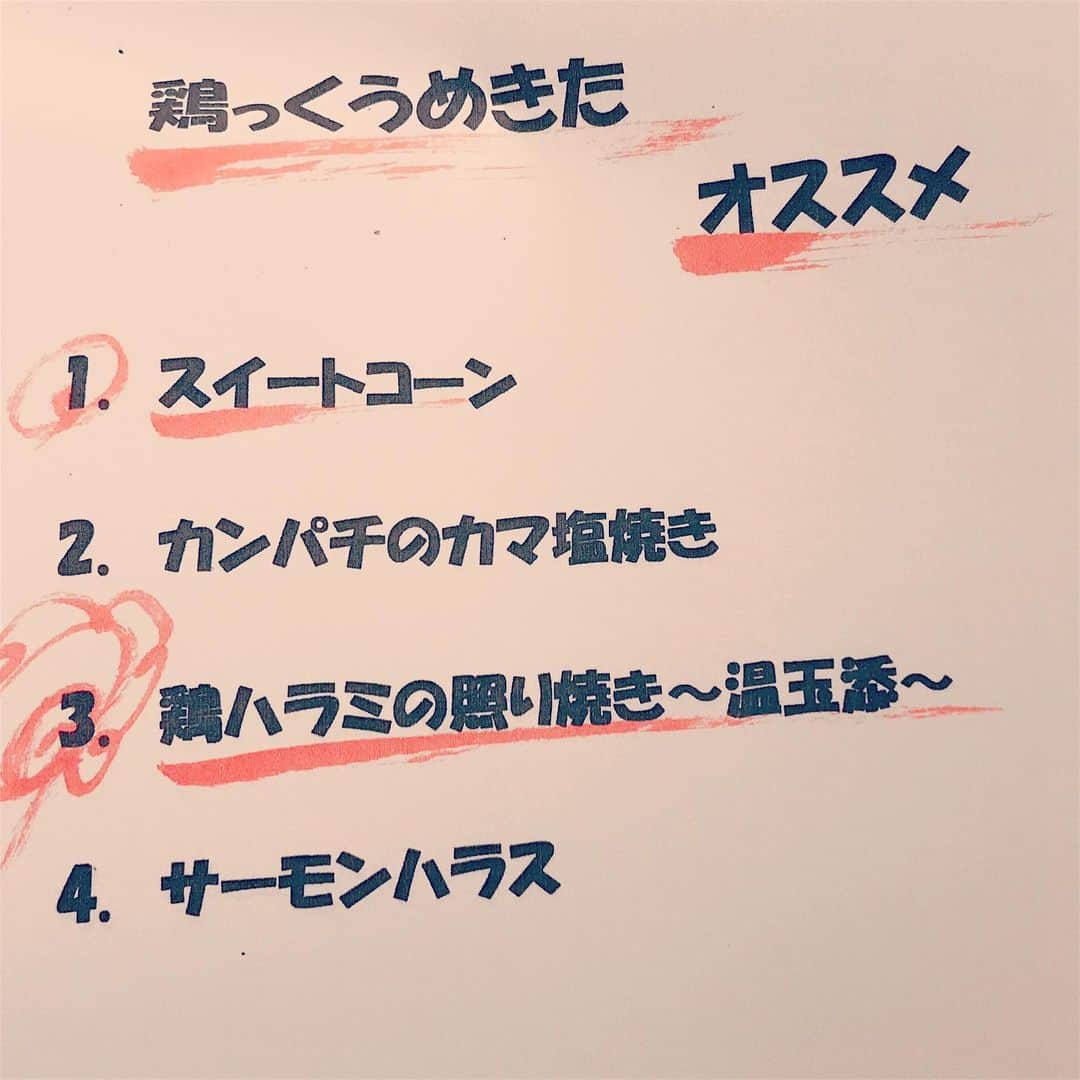 鶏っくうめきた
オススメ
1. スイートコーン
2. カンパチのカマ塩焼き
3. 鶏ハラミの照り焼き〜温玉添〜
4. サーモンハラス